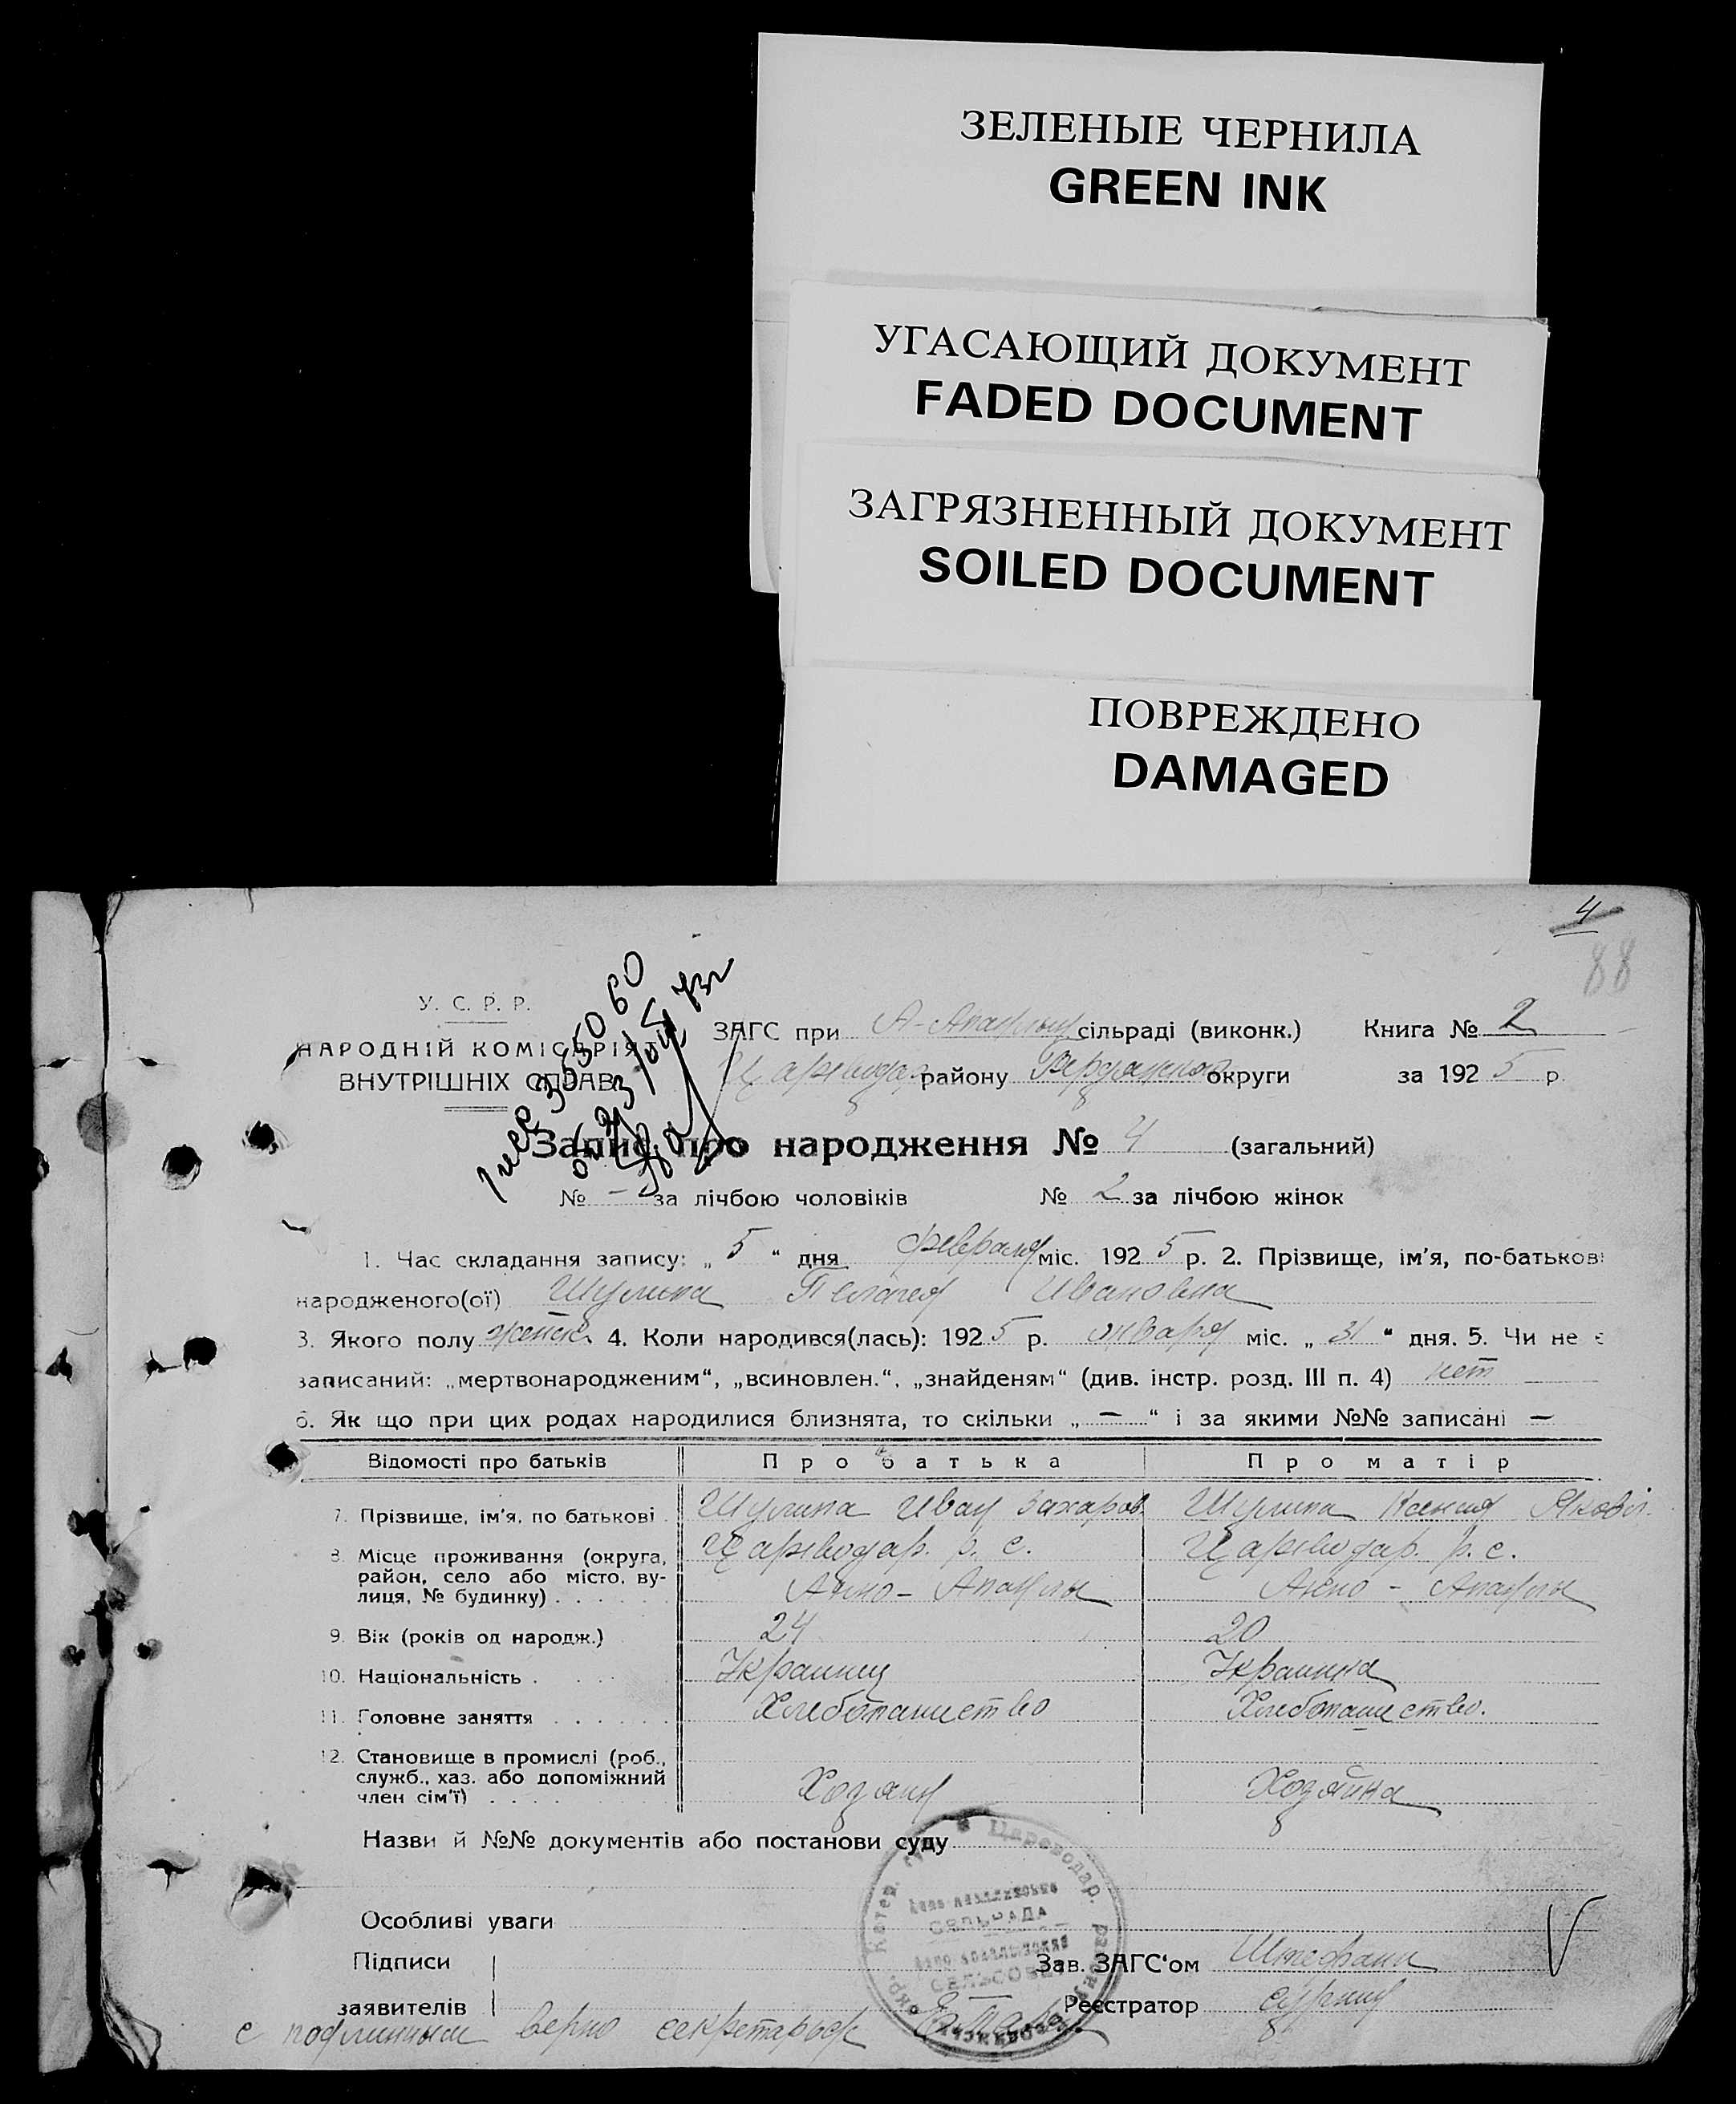 ЗЕЛЕНЫЕ ЧЕРНИЛА
GREEN INK
УГАСАЮЩИЙ ДОКУМЕНТ
FADED DOCUMENT
ЗАГРЯЗНЕННЫЙ ДОКУМЕНТ
SOILED DOCUMENT
ПОВРЕЖДЕНО
DAMAGED
4
88
У. С. Р. Р.
НАРОДНІЙ КОМІСАРІЯТ
ВНУТРІШНІХ СПРАВ
355060
ЗАГС при сільраді (виконк.) Книга № 2
Цареводар району округи за 1925 р.
Запис про народження № 4 (загальний)
№ — за лічбою чоловіків № 2 за лічбою жінок
1. Час складання запису: „5“ дня февраля міс. 1925 р. 2. Прізвище, ім'я, по-батькові
народженого(ої) Шулика Пелагея Ивановна
3. Якого полу женск. 4. Коли народився(лась): 1925 р. января міс. „31“ дня. 5. Чи не є
записаний: „мертвонародженим“, „всиновлен.“, „знайденям“ (див. інстр. розд. III п. 4) нет
6. Як що при цих родах народилися близнята, то скільки „—“ і за якими №№ записані —
Відомості про батьків Про батька Про матір
7. Прізвище, ім'я, по батькові Шулика Иван Захаров. Шулика Ксения Яковл.
8. Місце проживання (округа, район, село або місто, вулиця, № будинку) Цареводар. р. с. Цареводар. р. с.
Анно- Анно-
9. Вік (років од народж.) 24 20
10. Національність Украинец Украинка
11. Головне заняття Хлебопашество Хлебопашество.
12. Становище в промислі (роб., служб., хаз. або допоміжний член сім'ї) Хозяин Хозяйка
Назви й №№ документів або постанови суду
Особливі уваги
Підписи
заявителів
Зав. ЗАГС'ом
Реєстратор
Цареводар.
СЕЛЬРАДА
СЕЛЬСОВЕТ
с подлинным верно секретарь